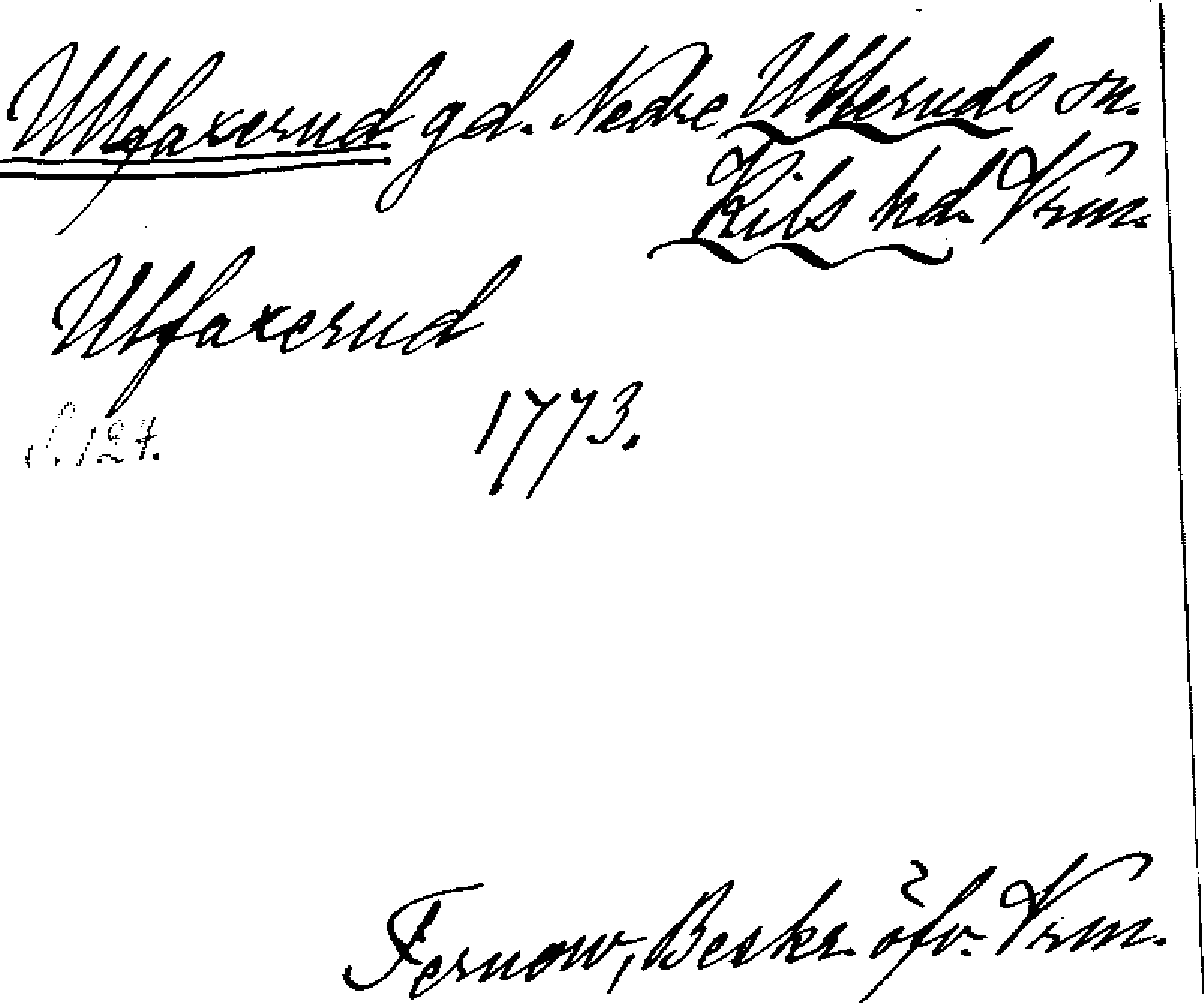 Ullfaxerud gd. Nedre Ulleruds sn.
Kils hd. Vrm.
Ulfaxerud
1773.
Fernow, Beskr. öfv. Vrm.